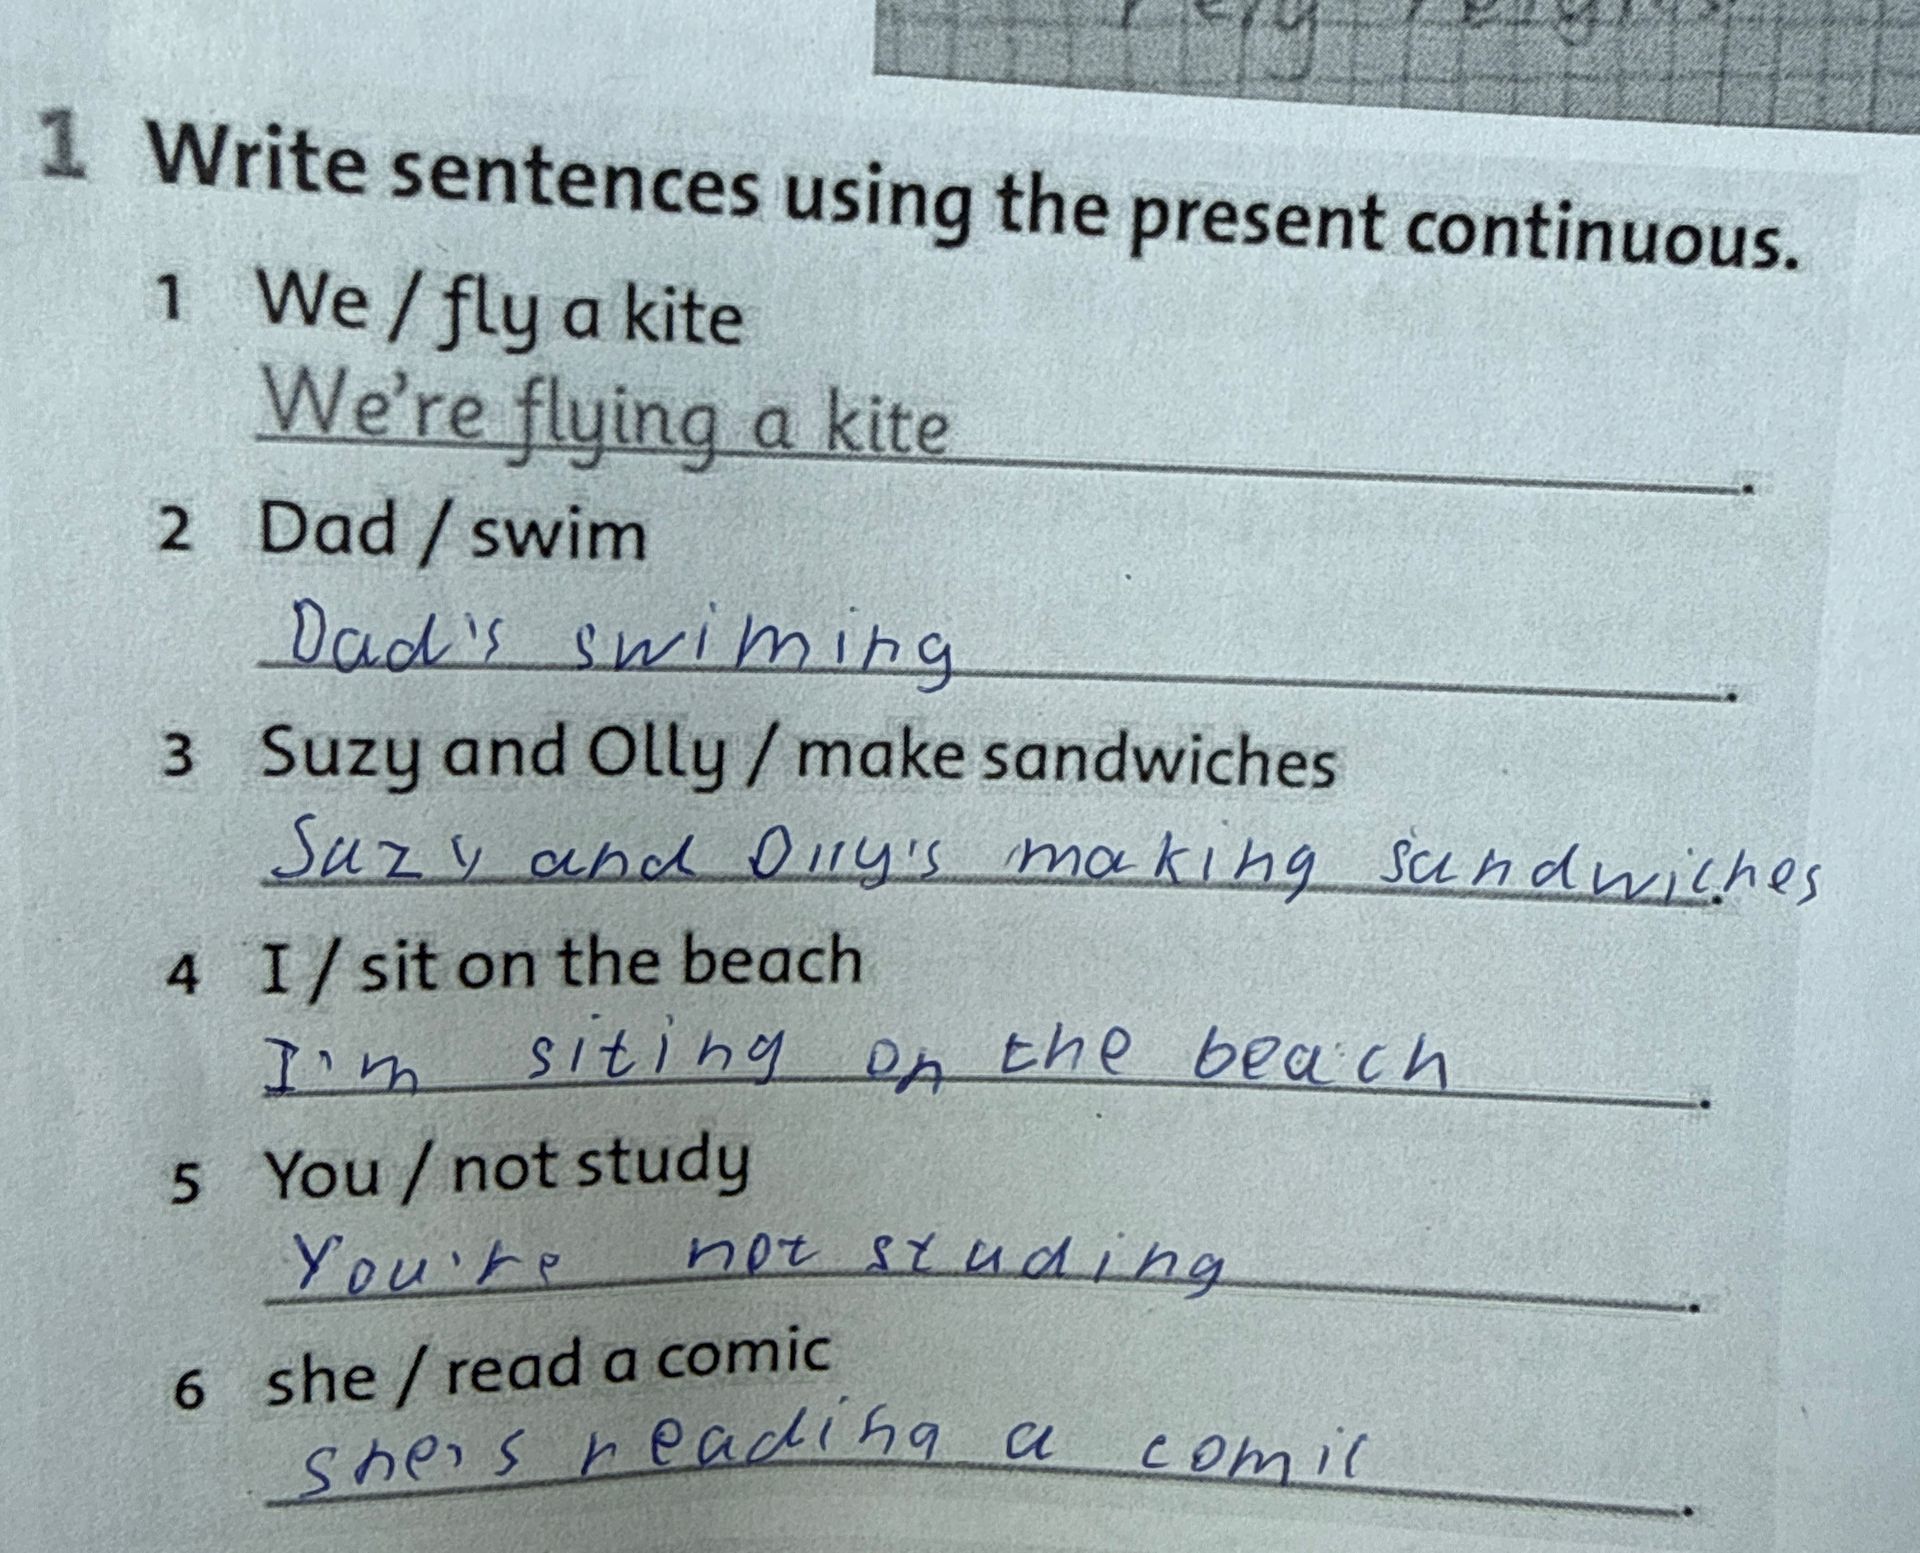 1 Write sentences using the present continuous.
1 We / fly a kite
We're flying a kite.
2 Dad / swim
Dad's swiming.
3 Suzy and Olly / make sandwiches
Suzy and Olly's making sandwiches.
4 I / sit on the beach
I'm siting on the beach.
5 You / not study
You're not studing.
6 she / read a comic
she's reading a comic.